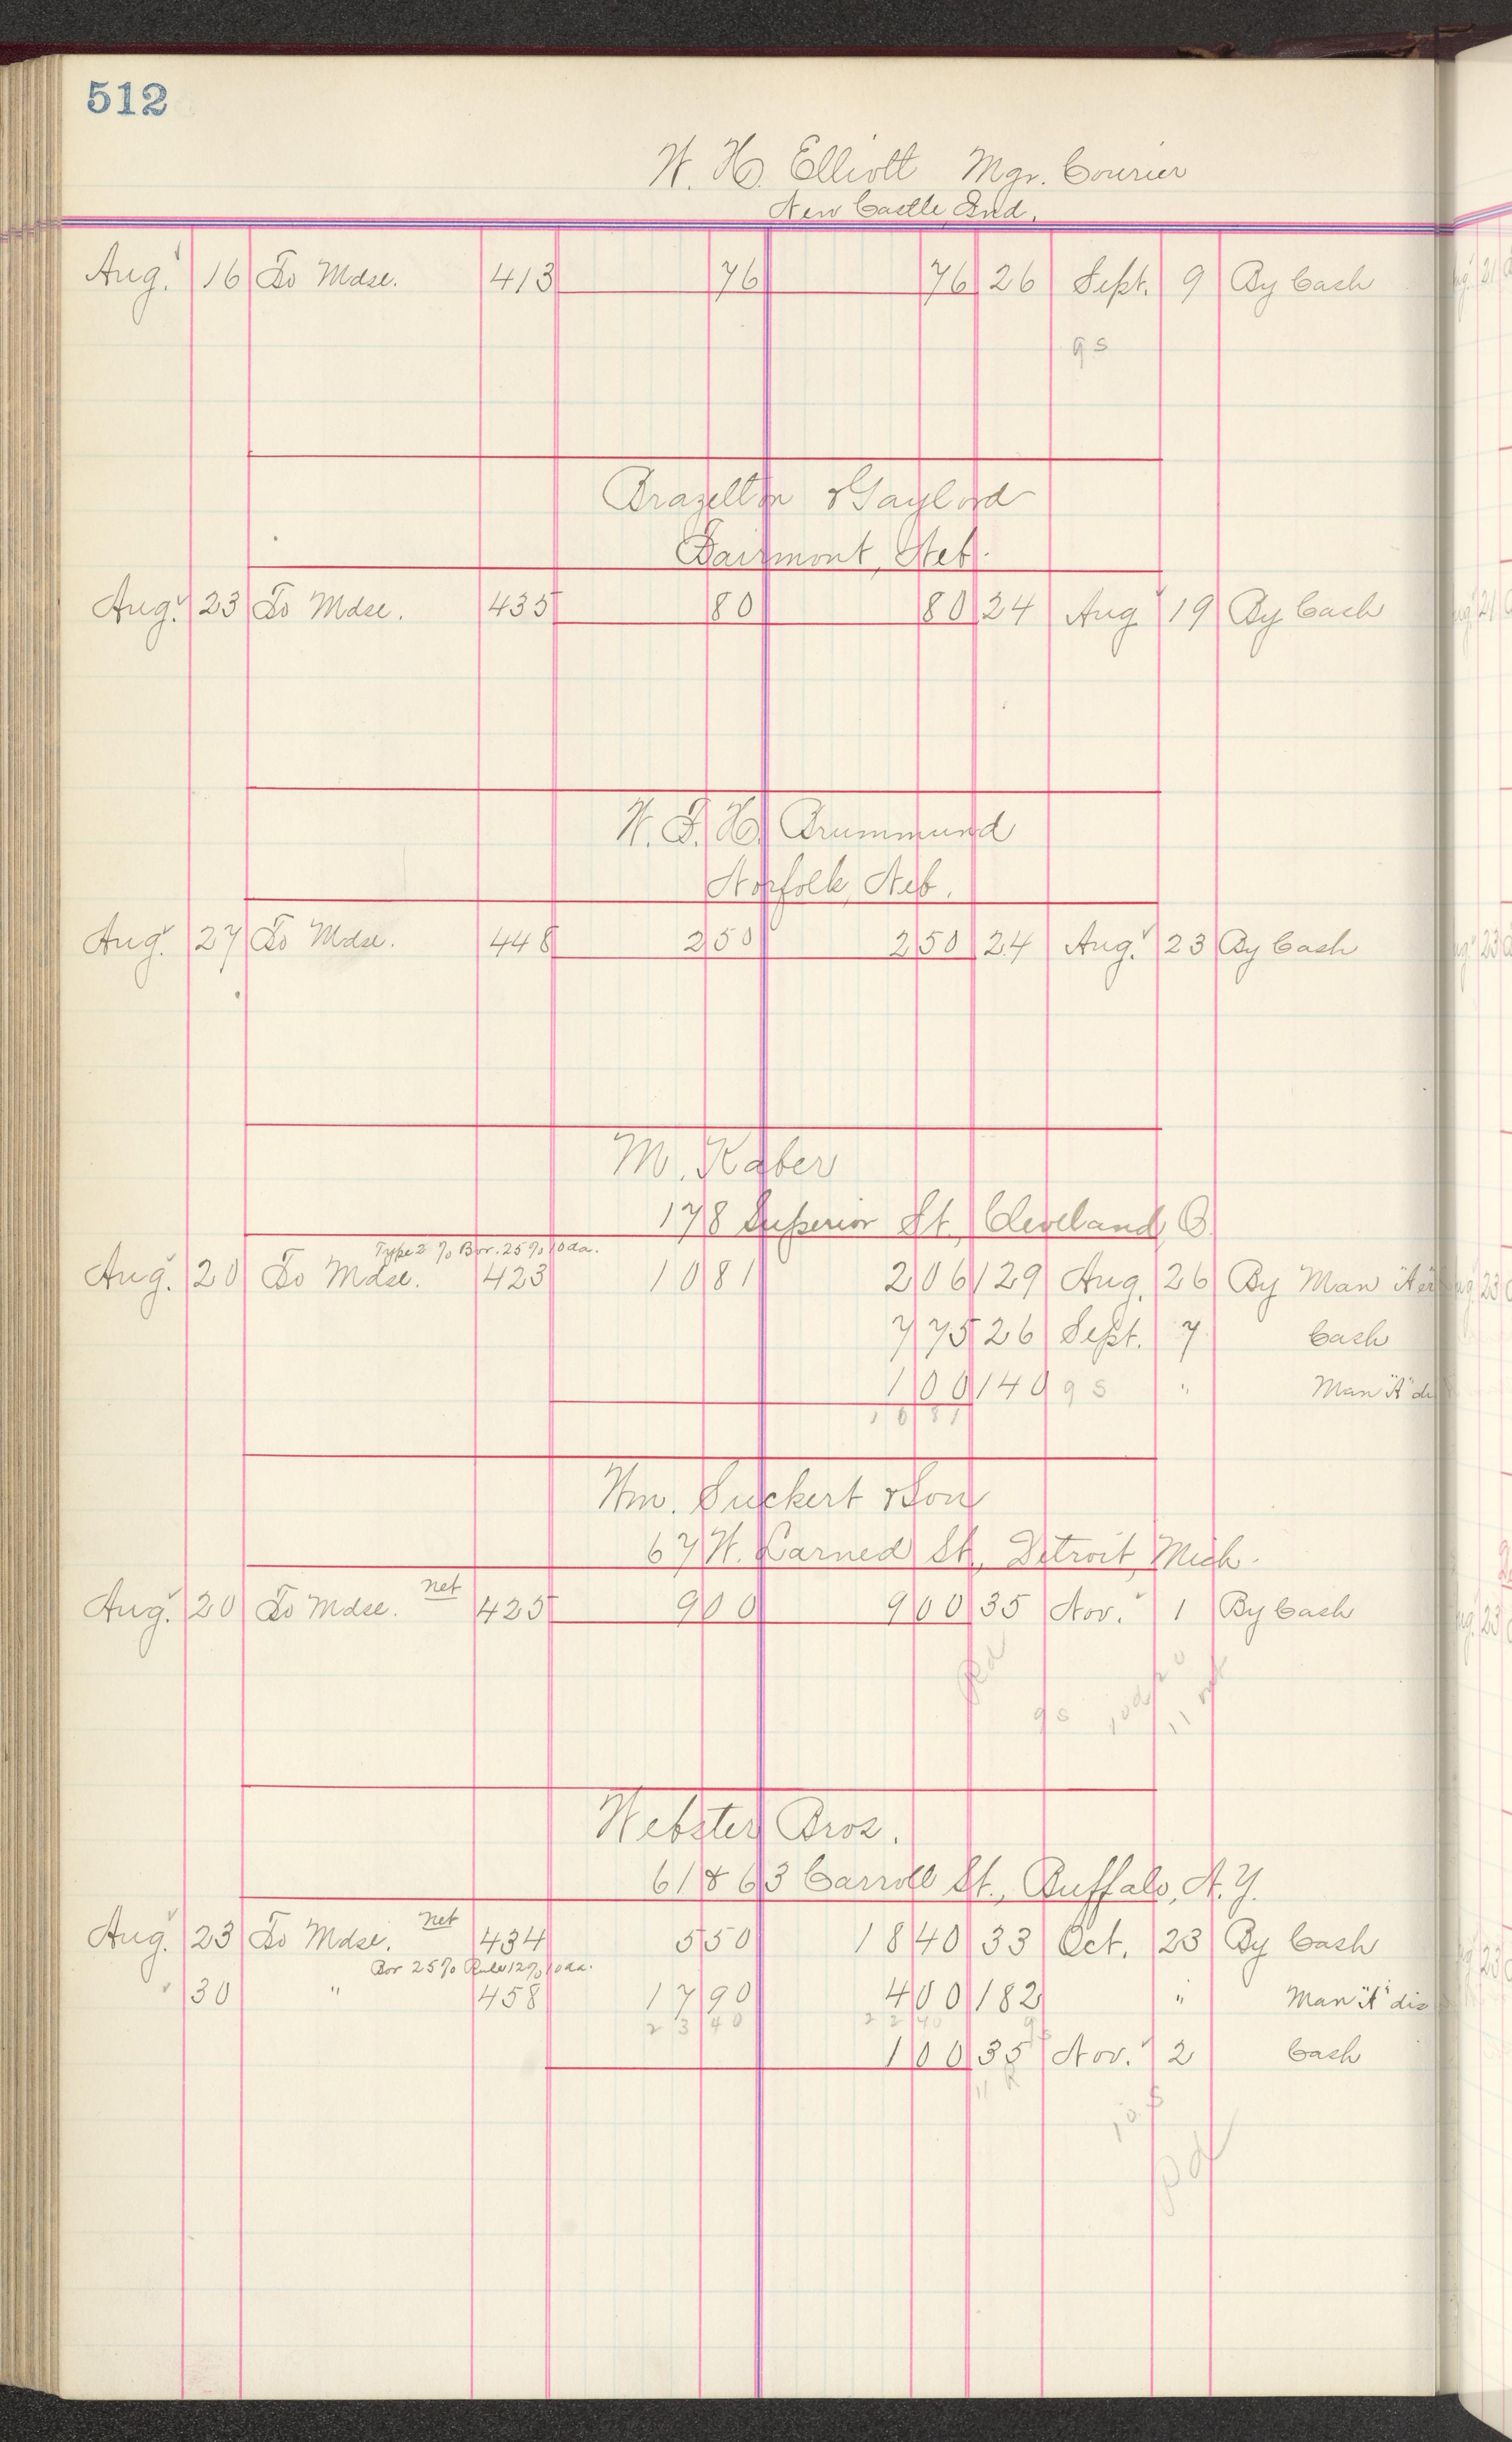 512
W. H. Elliott Mgr. Courier
New Castle, Ind.
Aug. 16 To Mdse. 413 76 76 26 Sept. 9 By Cash
9 5
Brazelton & Gaylord
Fairmont, Neb.
Aug. 23 To Mdse. 435 80 80 24 Aug 19 By Cash
W. F. H. Brummund
Norfolk, Neb.
Aug. 27 To Mdse. 448 2 50 2 50 24 Aug. 23 By Cash
M. Kaber
178 Superior St. Cleveland, O.
Type 2 % Bor. 25% 10 da.
Aug. 20 To Mdse. 423 10 81 2 06 129 Aug. 26 By Man "A"
7 75 26 Sept. 7 Cash
1 00 140 9 5 " Man "A"
10 81
Wm. Suckert & Son
67 W. Larned St., Detroit, Mich.
Aug. 20 To Mdse. net 425 9 00 9 00 35 Nov. 1 By Cash
Pd
9 5
Webster Bros.
61 & 63 Carroll St., Buffalo, N.Y.
Aug. 23 To Mdse. net 434 5 50 18 40 33 Oct. 23 By Cash
Bor 25% Rule 12% 10 da.
" 30 " 458 17 90 4 00 182 " Man "A" dis
23 40 22 40
1 00 35 Nov. 2 Cash
10 5
Pd